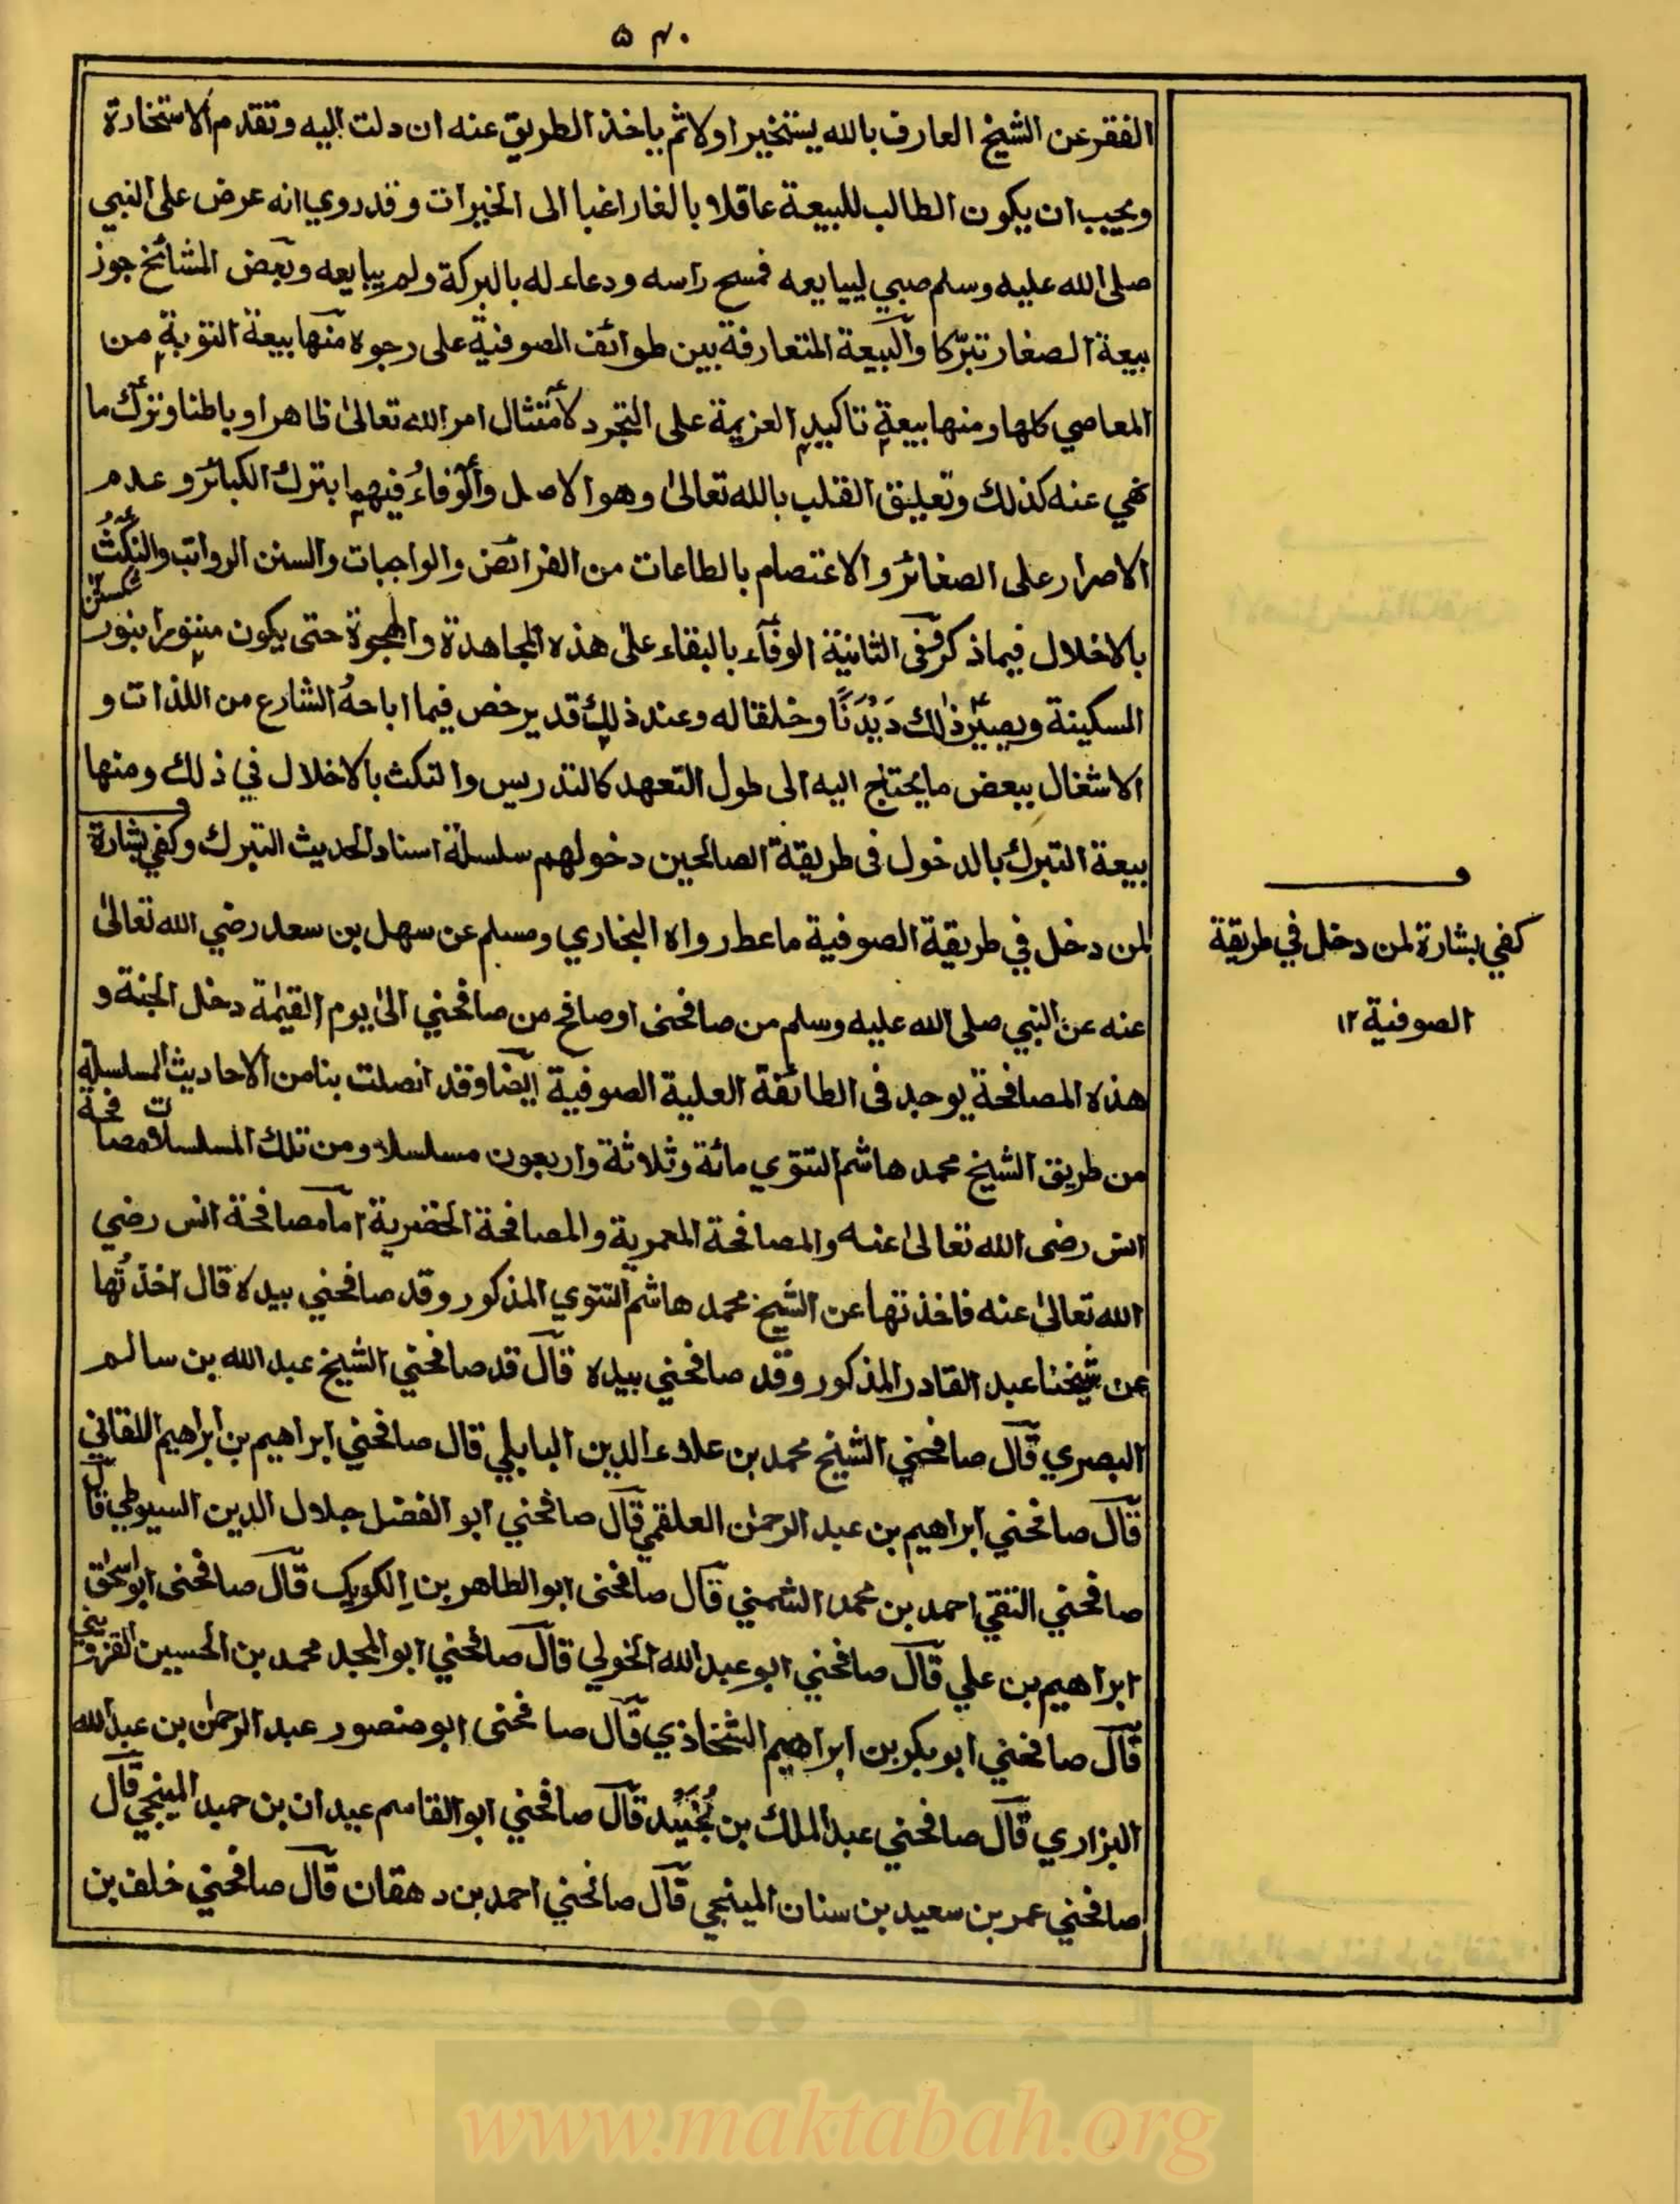 ۵۴۰
الفقر عن الشيخ العارف بالله يستخير اولا ثم ياخذ الطريق عنه ان دلت اليه وتقدم الاستخارة
ويجب ان يكون الطالب للبيعة عاقلا بالغا راغبا الى الخيرات وقد روي انه عرض على النبي
صلى الله عليه وسلم صبي ليبايعه فمسح راسه ودعاء له بالبركة ولم يبايعه وبعض المشائخ جوز
بيعة الصغار تبرّكا والبيعة المتعارفة بين طوائف الصوفية على رجوه منها بيعة التوبة من
المعاصي كلها ومنها بيعة تاكيد العزيمة على التجرد لامتثال امر الله تعالىٰ ظاهرا وباطنا وترك ما
نهي عنه كذلك وتعليق القلب بالله تعالىٰ وهو الاصل والوفاءُ فيهما بترك الكبائر وعدم
الاصرار على الصغائر والاعتصام بالطاعات من الفرائض والواجبات والسنن الرواتب والنكثُ
شكستن
بالاخلال فيما ذكر ففى الثانية الوفاء بالبقاء علىٰ هذه المجاهدة والهجرة حتى يكون متنورا بنور
السكينة ويصير ذٰلك دَيْدَنًا وخلقا له وعند ذلك قد يرخص فيما اباحهُ الشارع من اللذات و
الاشغال ببعض ما يحتاج اليه الى طول التعهد كالتدريس والنكث بالاخلال في ذلك ومنها
بيعة التبرك بالدخول فى طريقة الصالحين دخولهم سلسلة اسناد الحديث التبرك وكفي بشارة
لمن دخل في طريقة الصوفية ما عطر رواه البخاري ومسلم عن سهل بن سعد رضي الله تعالىٰ
عنه عن النبي صلى الله عليه وسلم من صافحنى او صافح من صافحني الىٰ يوم القيٰمة دخل الجنة و
هذه المصافحة يوجد فى الطائفة العلية الصوفية ايضا وقد اتصلت بنا من الاحاديث المسلسلة
من طريق الشيخ محمد هاشم التتوي مائة وثلاثة واربعون مسلسلا ومن تلك المسلسلات مصافحة
انس رضى الله تعالىٰ عنه والمصافحة المعمرية والمصافحة الخضرية اما مصافحة انس رضي
الله تعالىٰ عنه فاخذتها عن الشيخ محمد هاشم التتوي المذكور وقد صافحني بيده قال اخذتُها
عن شيخنا عبد القادر المذكور وقد صافحني بيده قال قد صافحني الشيخ عبد الله بن سالم
البصري قال صافحني الشيخ محمد بن علاء الدين البابلي قال صافحني ابراهيم بن ابراهيم اللقاني
قال صافحني ابراهيم بن عبد الرحمٰن العلقمي قال صافحني ابو الفضل جلال الدين السيوطي قال
صافحني التقي احمد بن محمد الشمني قال صافحنى ابو الطاهر بن الكويك قال صافحنى ابو اسحٰق
ابراهيم بن علي قال صافحني ابو عبد الله الخولي قال صافحني ابو المجد محمد بن الحسين القزويني
قال صافحني ابو بكر بن ابراهيم الشخاذي قال صافحنى ابو منصور عبد الرحمٰن بن عبد الله
البزاري قال صافحني عبد الملك بن نُجَيْد قال صافحني ابو القاسم عبدان بن حميد المينجي قال
صافحني عمر بن سعيد بن سنان المينجي قال صافحني احمد بن دهقان قال صافحني خلف بن
ف
كفي بشارة لمن دخل في طريقة
الصوفية ١٢
www.maktabah.org